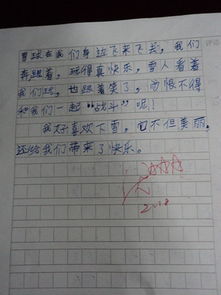 雪球在我们身边飞来飞去，我们
奔跑着，玩得真快乐，雪人看着
我们跑，也跟着笑了，而恨不得
和我们一起“战斗”呢！
我好喜欢下雪，雪不但美丽，
还给我们带来了快乐。